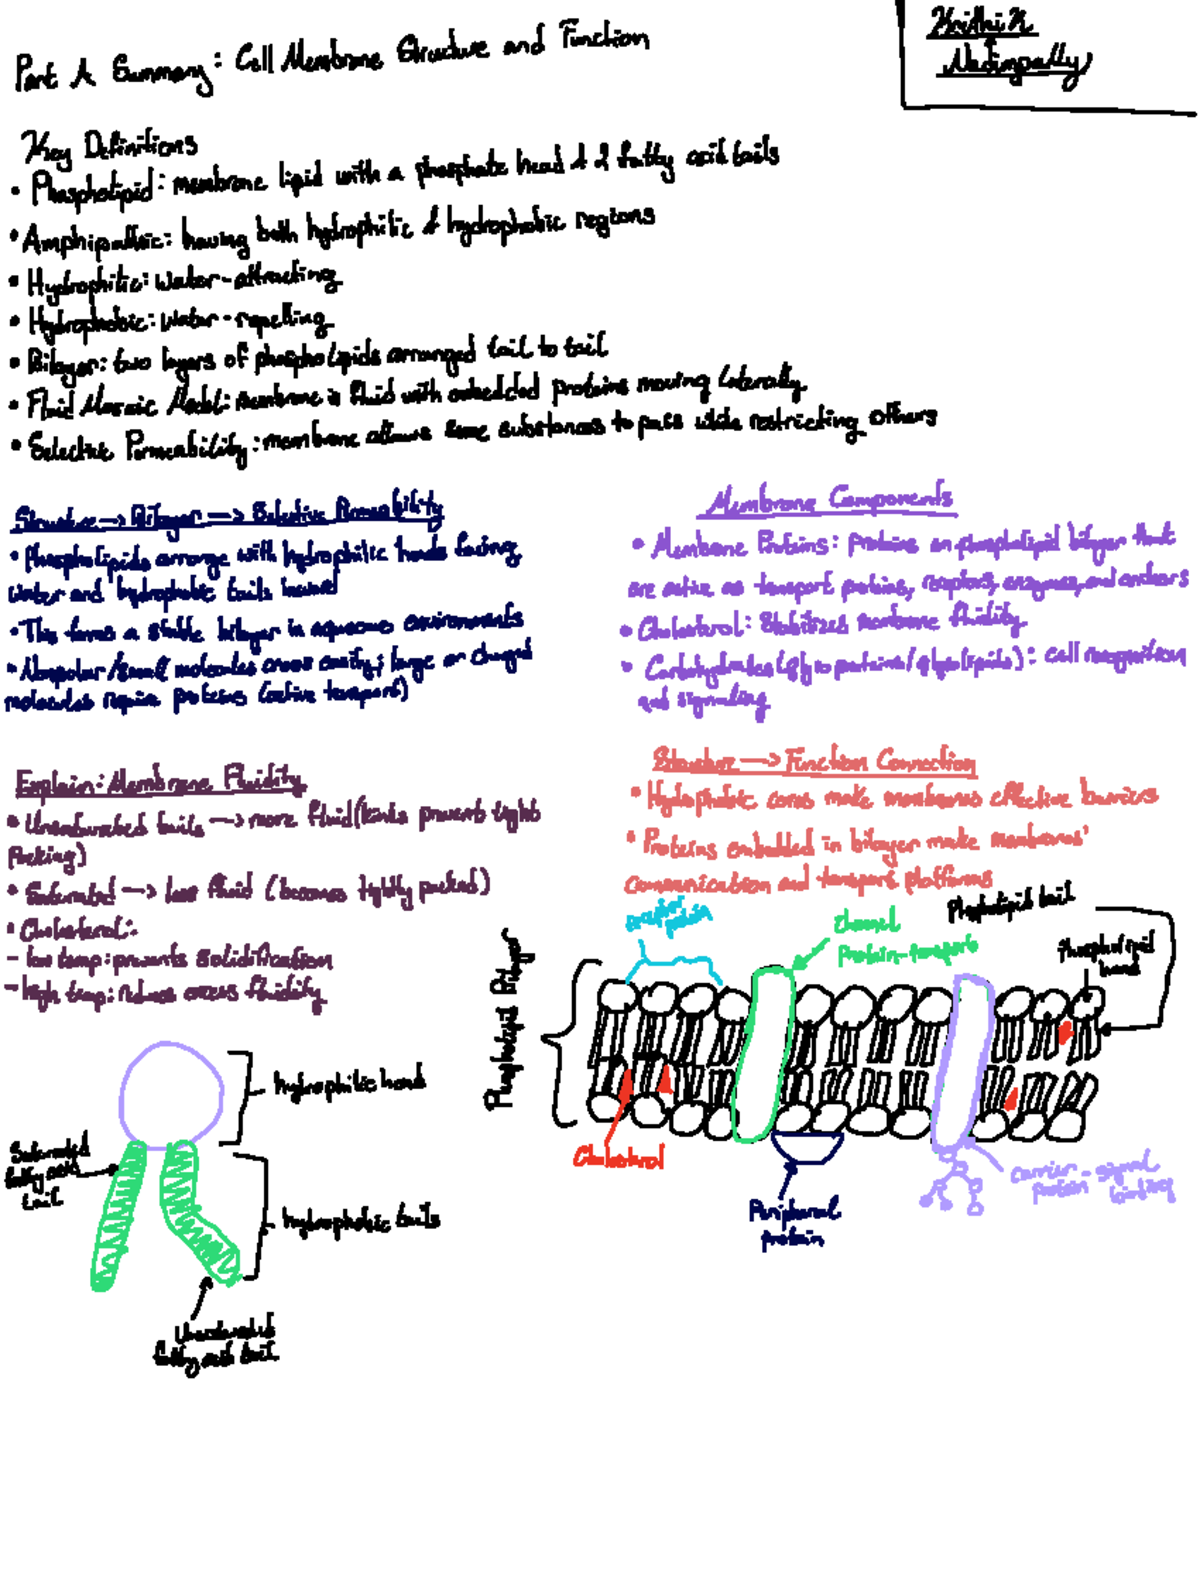 Krithik
Nadimpally
Part A Summary: Cell Membrane Structure and Function
Key Definitions
• Phospholipid: membrane lipid with a phosphate head & 2 fatty acid tails
• Amphipathic: having both hydrophilic & hydrophobic regions
• Hydrophilic: water-attracting
• Hydrophobic: water-repelling
• Bilayer: two layers of phospholipids arranged tail to tail
• Fluid Mosaic Model: membrane is fluid with embedded proteins moving laterally
• Selective Permeability: membrane allows some substances to pass while restricting others
Structure → Bilayer → Selective Permeability
• Phospholipids arrange with hydrophilic heads facing
water and hydrophobic tails inward
• This forms a stable bilayer in aqueous environments
• Nonpolar/small molecules cross easily; large or charged
molecules require proteins (active transport)
Membrane Components
• Membrane Proteins: proteins on phospholipid bilayer that
are active as transport proteins, receptors, enzymes, and anchors
• Cholesterol: Stabilizes membrane fluidity
• Carbohydrates (glycoproteins/glycolipids): cell recognition
and signaling
Explain: Membrane Fluidity
• Unsaturated tails → more fluid (kinks prevent tight
packing)
• Saturated → less fluid (becomes tightly packed)
• Cholesterol:
- low temp: prevents solidification
- high temp: reduces excess fluidity
Structure → Function Connection
• Hydrophobic cores make membranes effective barriers
• Proteins embedded in bilayer make membranes'
communication and transport platforms
receptor
protein
Channel
Protein-transports
Phospholipid tail
Phospholipid
head
Phospholipid Bilayer
Cholesterol
Peripheral
protein
Carrier
protein - signal
binding
hydrophilic head
Saturated
fatty acid
tail
hydrophobic tails
Unsaturated
fatty acid tail